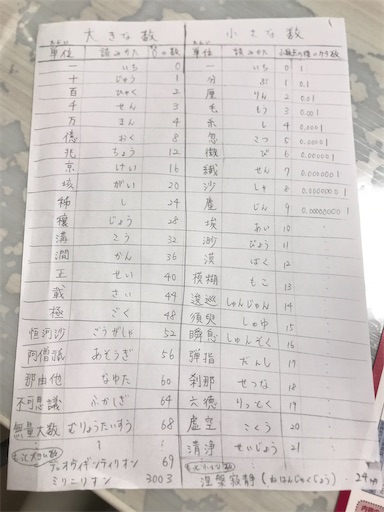 大きな数 小さな数
たんい たんい
単位 読みかた 0の数 単位 読みかた 小数点の後の0の数
一 いち 0 一 いち 0 1
十 じゅう 1 分 ぶ 1 0.1
百 ひゃく 2 厘 りん 2 0.01
千 せん 3 毛 もう 3 0.001
万 まん 4 糸 し 4 0.0001
億 おく 8 忽 こつ 5
兆 ちょう 12 微 び 6
京 けい 16 繊 せん 7
垓 がい 20 沙 しゃ 8
𥝱 し 24 塵 じん 9
穣 じょう 28 埃 あい 10
溝 こう 32 渺 びょう 11
澗 かん 36 漠 ばく 12
正 せい 40 模糊 もこ 13
載 さい 44 逡巡 しゅんじゅん 14
極 ごく 48 須臾 しゅゆ 15
恒河沙 ごうがしゃ 52 瞬息 しゅんそく 16
阿僧祇 あそうぎ 56 弾指 だんし 17
那由他 なゆた 60 刹那 せつな 18
不可思議 ふかしぎ 64 六徳 りっとく 19
無量大数 むりょうたいすう 68 虚空 こくう 20
清浄 せいじょう 21
もっと大きな数 もっと小さな数
デュオヴィギンティリオン 69 涅槃寂静(ねはんじゃくじょう) 24
ミリニリオン 3003